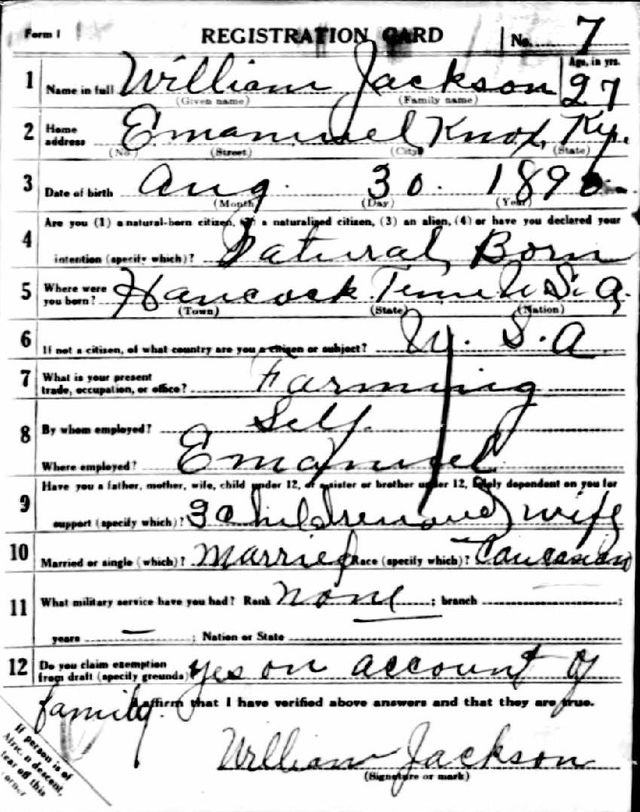 Form 1 REGISTRATION CARD No. 7
1 Name in full William Jackson Age, in yrs. 27
(Given name) (Family name)
2 Home address Emanuel Knox, Ky.
(No.) (Street) (City) (State)
3 Date of birth Aug. 30. 1890.
(Month) (Day) (Year)
4 Are you (1) a natural-born citizen, (2) a naturalized citizen, (3) an alien, (4) or have you declared your
intention (specify which)? Natural Born
5 Where were you born? Hancock Tenn U.S.A.
(Town) (State) (Nation)
6 If not a citizen, of what country are you a citizen or subject? U.S.A.
7 What is your present trade, occupation, or office? Farming
8 By whom employed? Self.
Where employed? Emanuel
9 Have you a father, mother, wife, child under 12, or a sister or brother under 12, solely dependent on you for
support (specify which)? 3 children and wife
10 Married or single (which)? Married Race (specify which)? Caucasian
11 What military service have you had? Rank none ; branch ;
years — ; Nation or State
12 Do you claim exemption from draft (specify grounds)? Yes on account of
family.
I affirm that I have verified above answers and that they are true.
William Jackson
(Signature or mark)
If person is of
African descent,
tear off this
corner